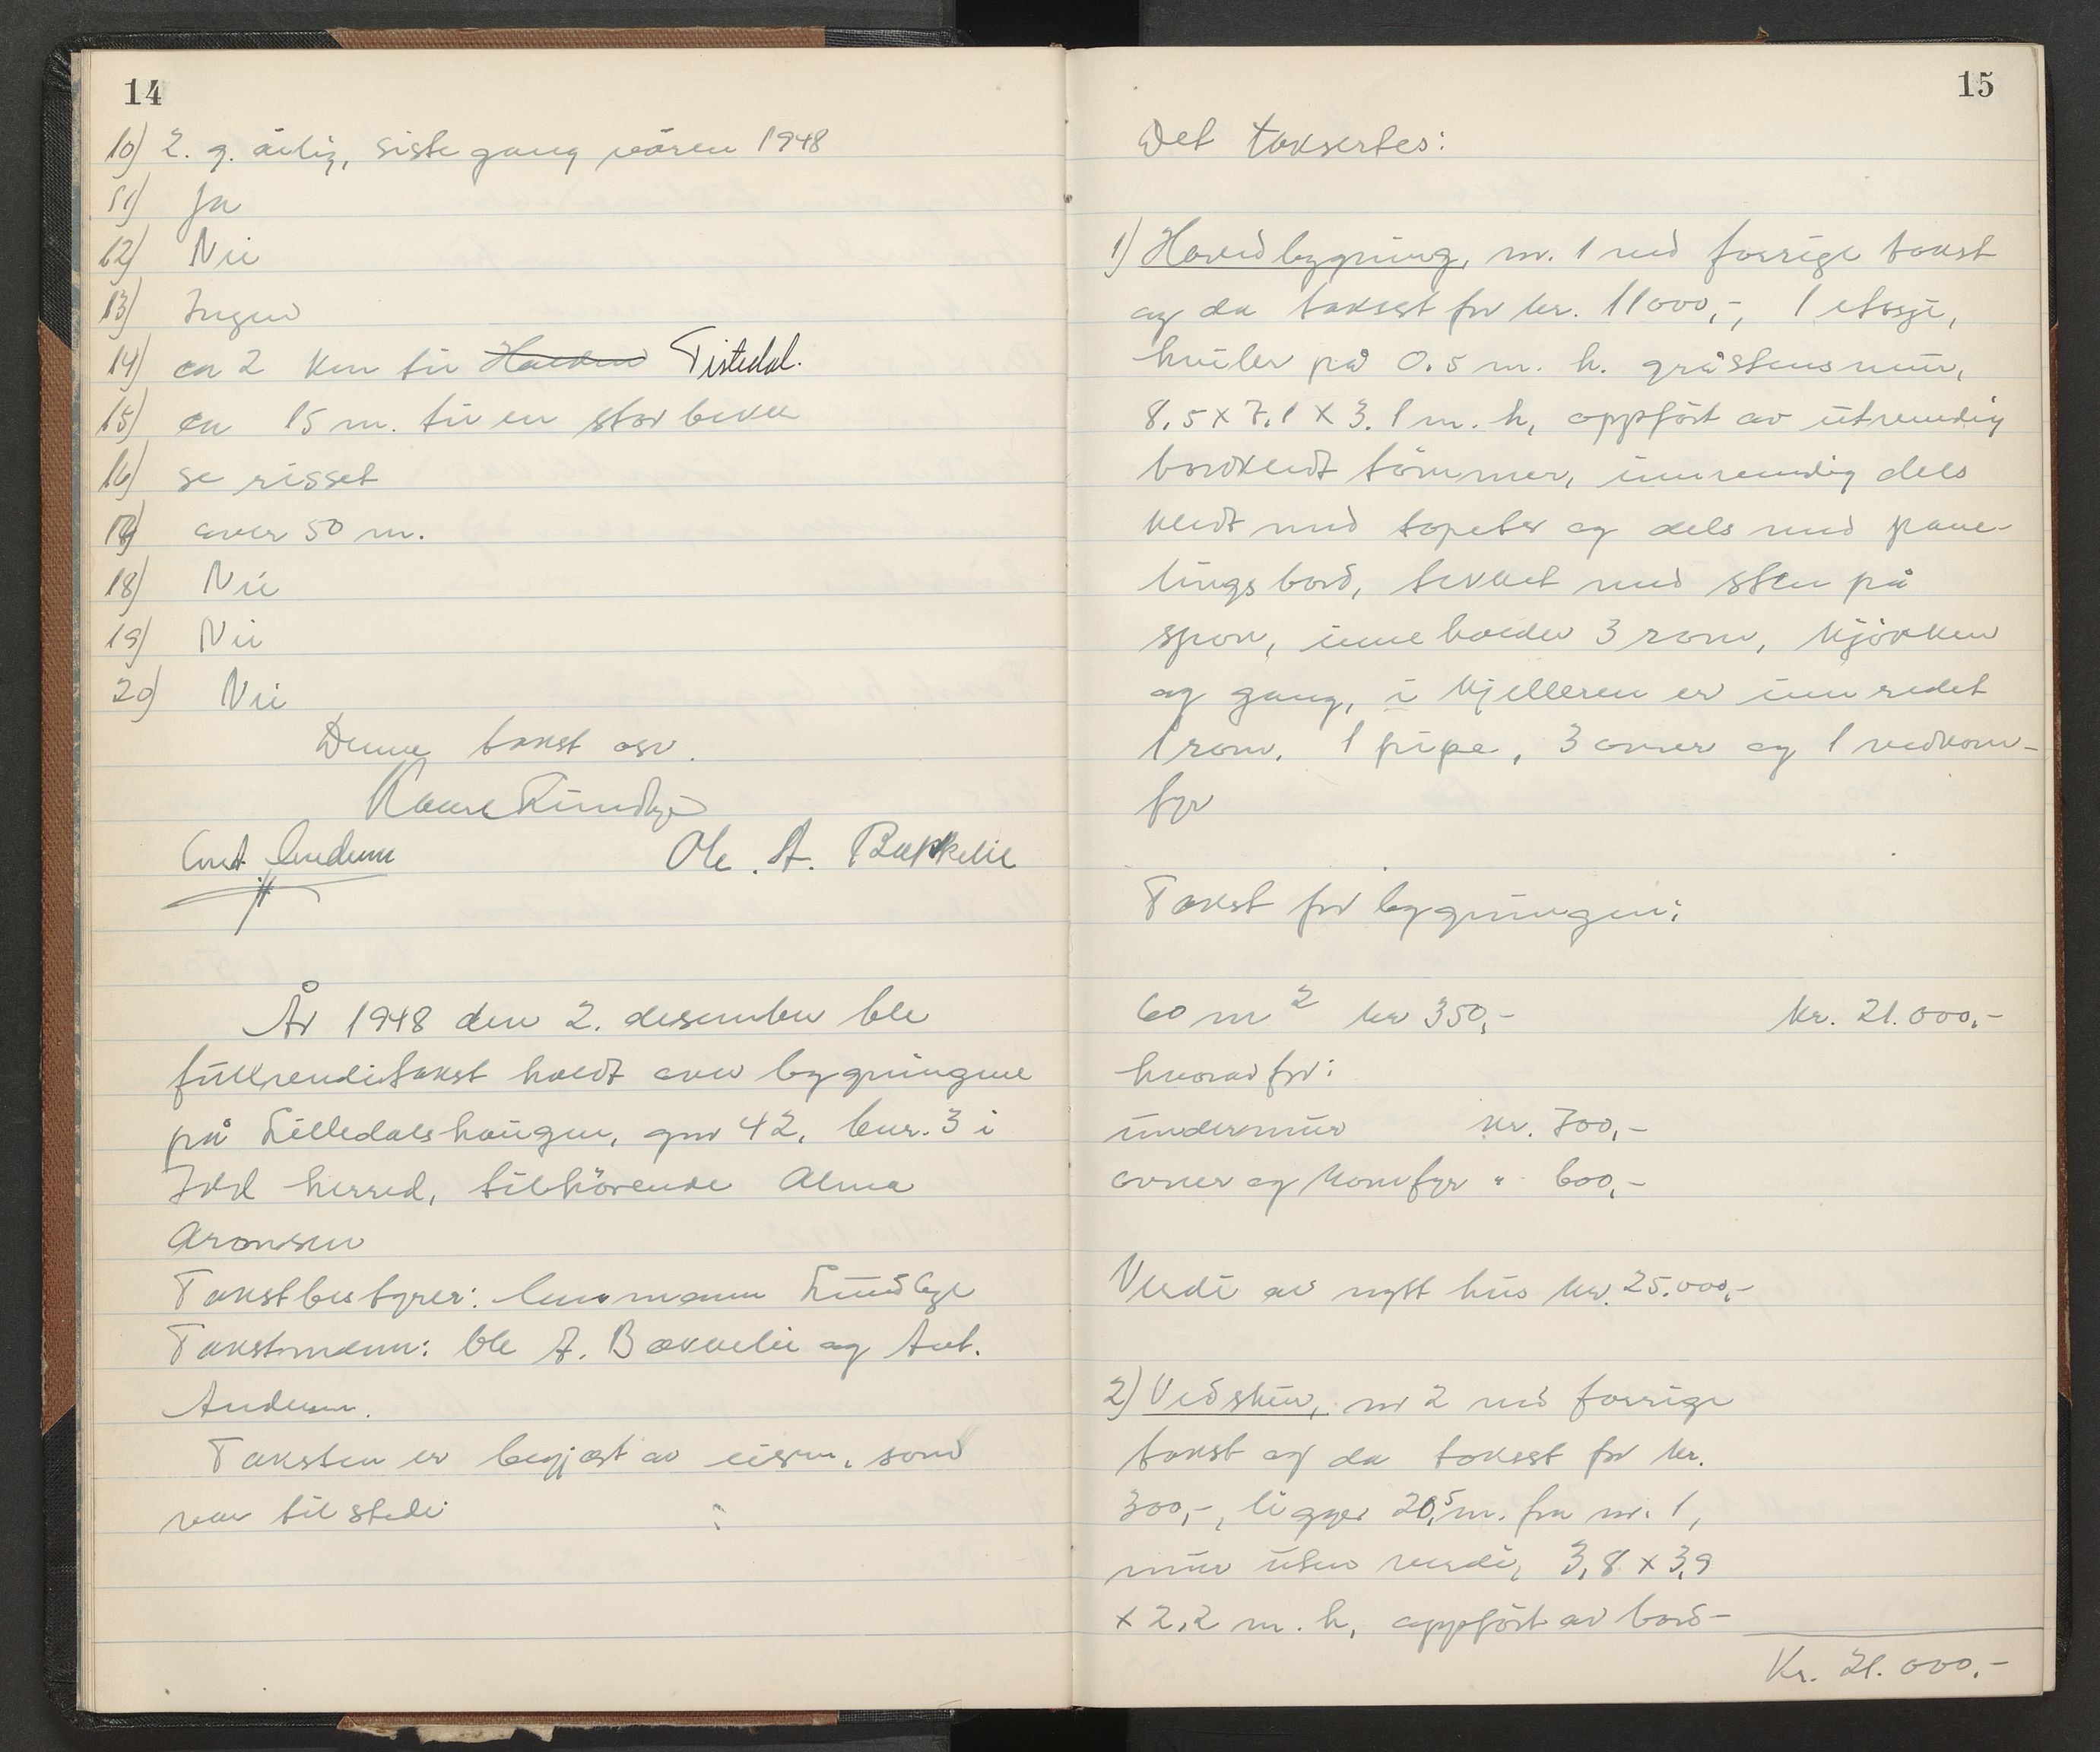 14
10) 2. g. årlig, siste gang våren 1948
11) Ja
12) Nei
13) Ingen
14) ca 2 km til Halden Tistedal.
15) ca 15 m. til en stor bekk
16) se risset
17) over 50 m.
18) Nei
19) Nei
20) Nei
Denne takst osv.
Kaare Lundbye
Ole. A. Bækkelie
År 1948 den 2. desember ble
fullverditakst holdt over bygningene
på Lilledalshaugen, gnr 42, bnr. 3 i
Idd herred, tilhörende Alma
Aronsen
Takstbestyrer: lensmann Lundbye
Takstmenn: Ole A. Bækkelie og Ant.
Andersen.
Taksten er begjært av eieren, som
var til stede
15
Det taksertes:
1) Hovedbygning, nr. 1 ved forrige takst
og da taksert for kr. 11000,-, 1 etasje,
hviler på 0.5 m. h. gråstensmur,
8,5 x 7,1 x 3.1 m. h, oppfört av utvendig
bordkledt tömmer, innvendig dels
kledt med tapeter og dels med pane-
lingsbord, tekket med sten på
spon, inneholder 3 rom, kjökken
og gang, i kjelleren er innredet
1 rom. 1 pipe, 3 ovner og 1 vedkom-
fyr
Takst for bygningen:
60 m² kr 350,- kr. 21.000,-
hvorav for:
undermur kr. 700,-
ovner og komfyr " 600,-
Verdi av nytt hus kr. 25.000,-
2) Vedskur, nr 2 ved forrige
takst og da taksert for kr.
300,-, ligger 20,5 m. fra nr. 1,
mur uten verdi, 3,8 x 3,9
x 2,2 m. h, oppfört av bord-
Kr. 21.000,-